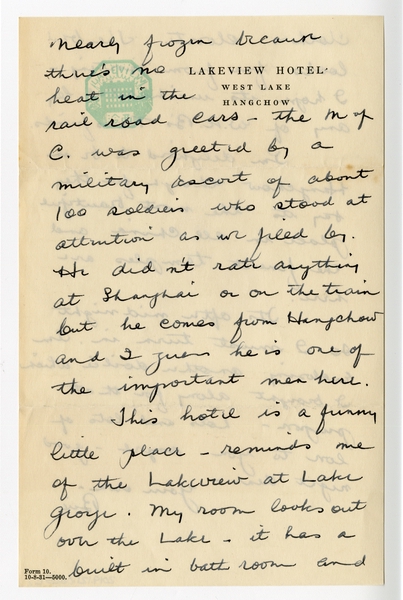 nearly frozen because
there's no
LAKEVIEW HOTEL
WEST LAKE
HANGCHOW
heat in the
rail road cars - the M of
C. was greeted by a
military escort of about
100 soldiers who stood at
attention as we filed by.
He didn't rate anything
at Shanghai or on the train
but he comes from Hangchow
and I guess he is one of
the important men here.
This hotel is a funny
little place - reminds me
of the Lakeview at Lake
George. My room looks out
over the Lake - it has a
built in bath room and
Form 10.
10-8-31—5000.